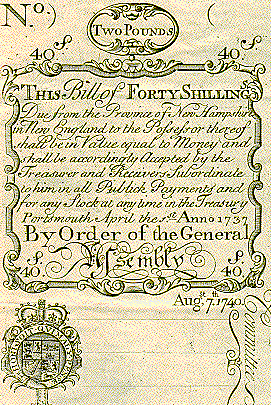 No. ) (
TWO POUNDS
40 s. 40 s.
This Bill of FORTY SHILLINGS
Due from the Province of New Hampshire
in New England to the Possessor thereof
shall be in Value equal to Money and
shall be accordingly Accepted by the
Treasurer and Receivers Subordinate
to him in all Publick Payments and
for any Stock at any time in the Treasury
Portsmouth April the 1st. Anno 1737
By Order of the General
S. Assembly S.
40. 40.
Augst. 7th. 1740.
Committee